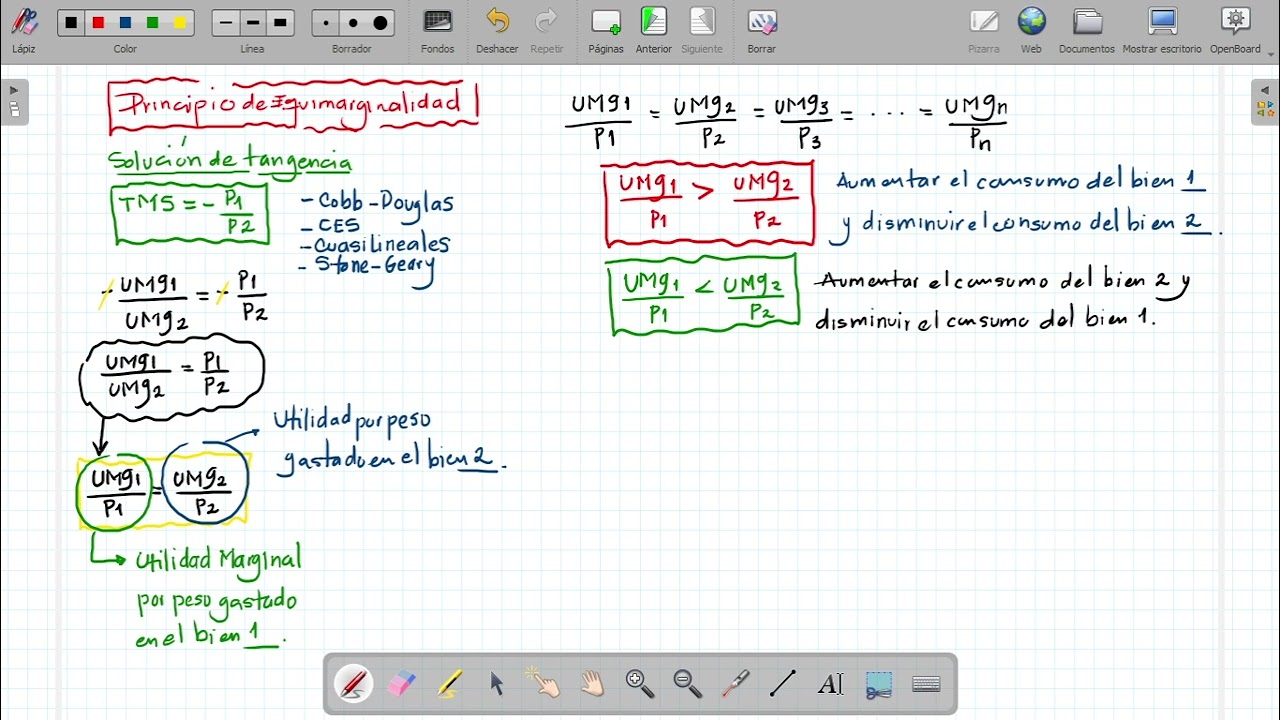 Lápiz
Color
Línea
Borrador
Fondos
Deshacer
Repetir
Páginas
Anterior
Siguiente
Borrar
Pizarra
Web
Documentos
Mostrar escritorio
OpenBoard
Principio de Equimarginalidad
Solución de tangencia
TMS = - P1/P2
- Cobb-Douglas
- CES
- Cuasilineales
- Stone-Geary
- UMg1/UMg2 = - P1/P2
UMg1/UMg2 = P1/P2
UMg1/P1 = UMg2/P2
Utilidad por peso
gastado en el bien 2.
Utilidad Marginal
por peso gastado
en el bien 1.
UMg1/P1 = UMg2/P2 = UMg3/P3 = ... = UMgn/Pn
UMg1/P1 > UMg2/P2
Aumentar el consumo del bien 1
y disminuir el consumo del bien 2.
UMg1/P1 < UMg2/P2
Aumentar el consumo del bien 2 y
disminuir el consumo del bien 1.
AI